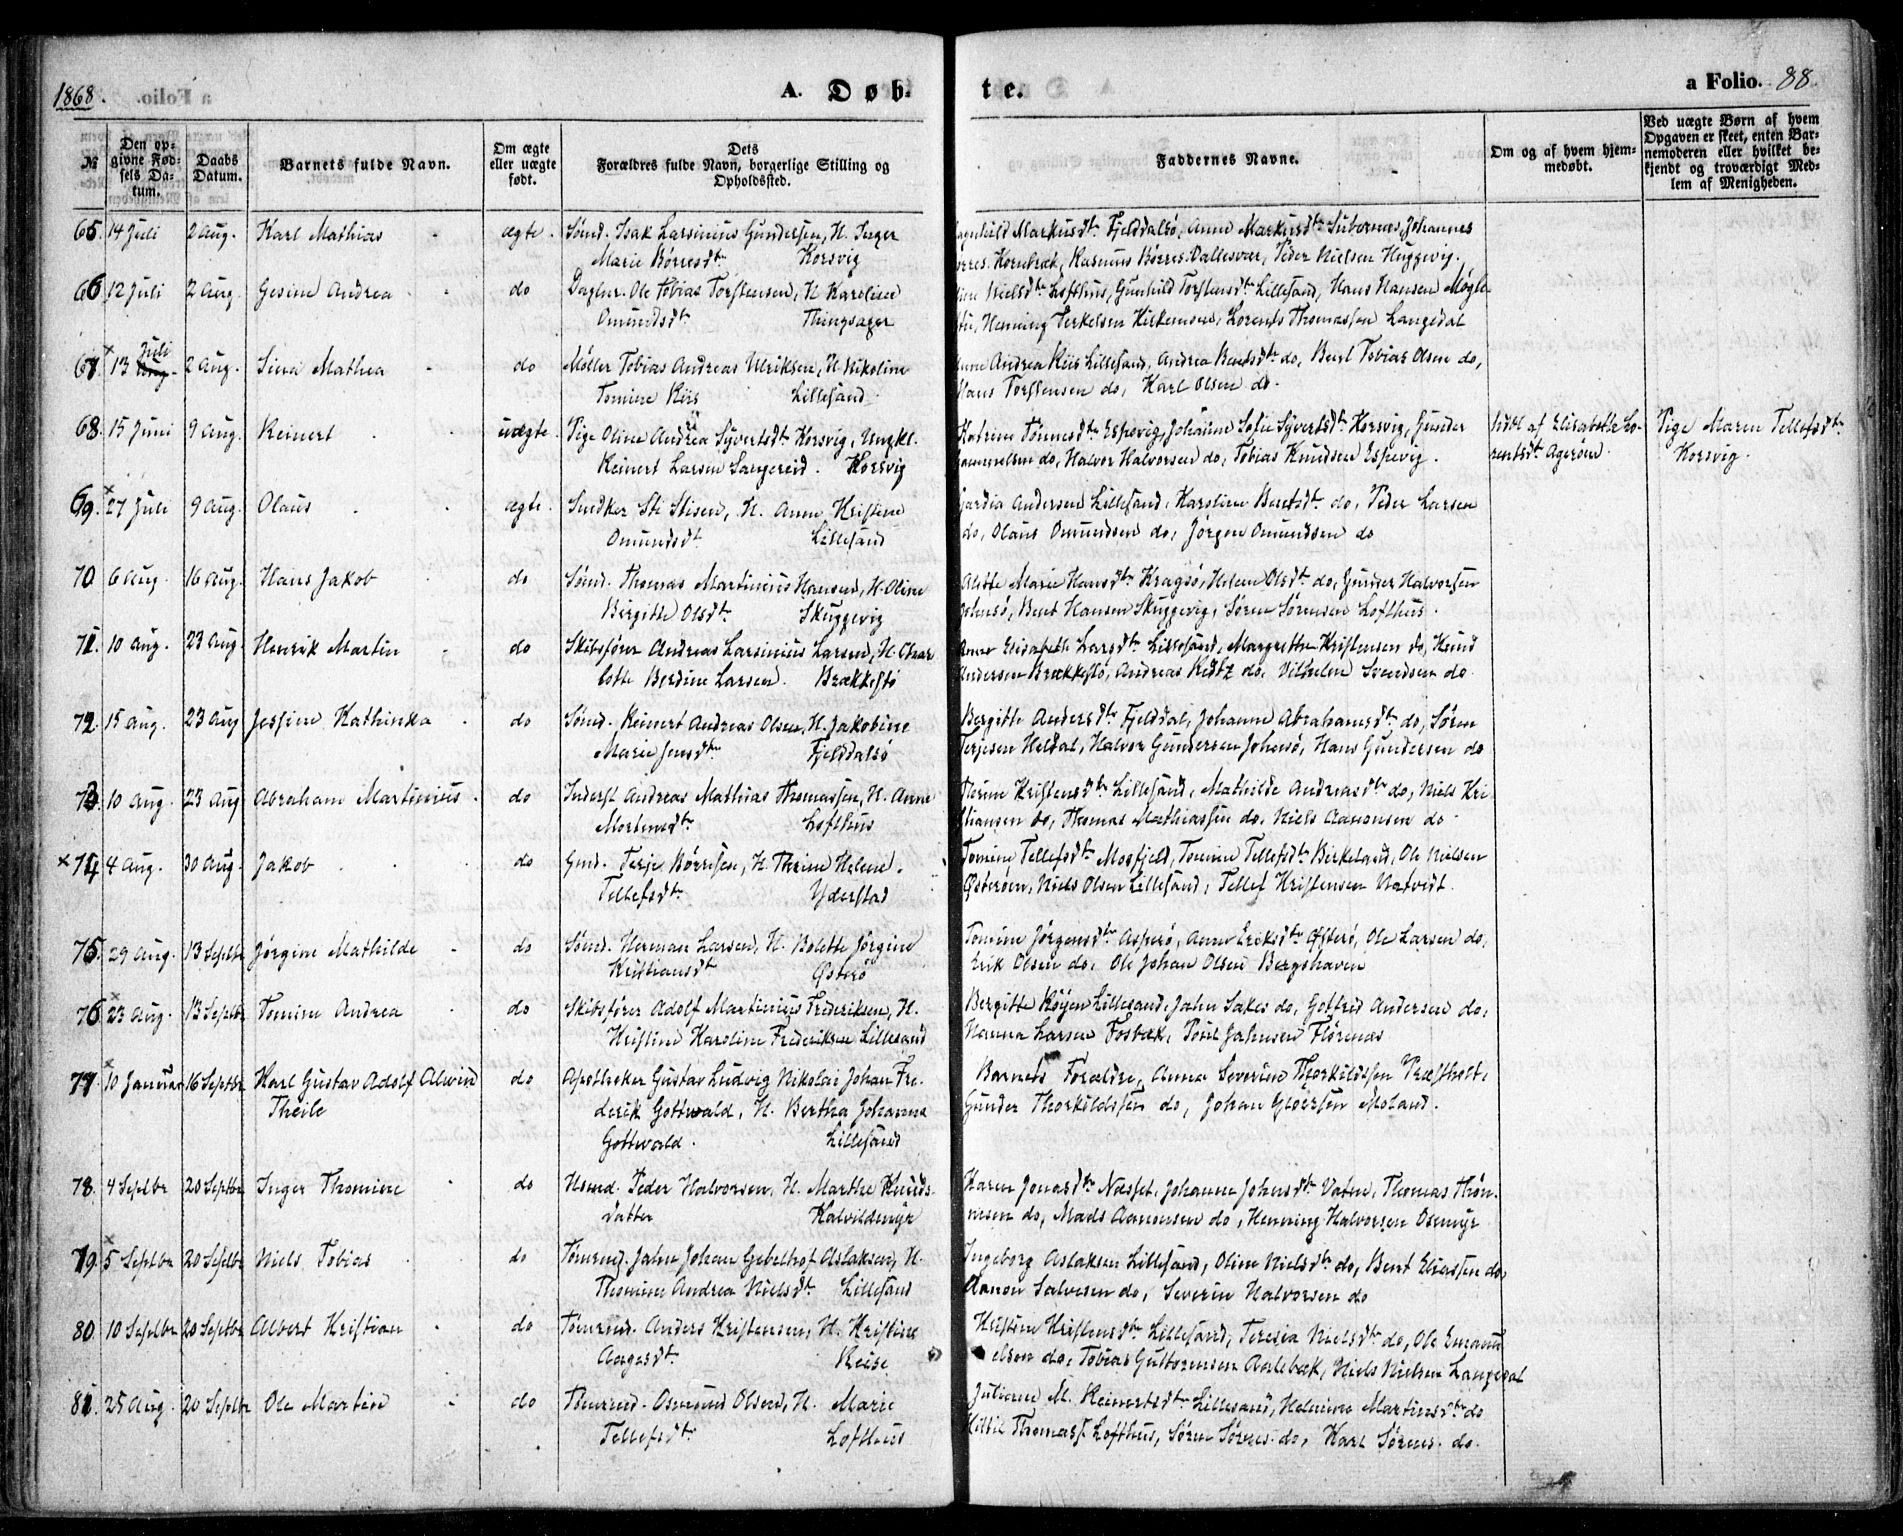 1868.
A. Døb-
te.
a Folio. 88.
№
Den opgivne Fødsels Datum.
Daabs Datum.
Barnets fulde Navn.
Om ægte eller uægte født.
Dets Forældres fulde Navn, borgerlige Stilling og Opholdssted.
Faddernes Navne.
Om og af hvem hjemmedøbt.
Ved uægte Børn af hvem Opgaven er skeet, enten Barnemoderen eller hvilket bekjendt og troværdigt Medlem af Menigheden.
65. 14 Juli 2 Aug. Karl Mathias ægte. Sømd. Isak Larsinius Gundersen, H. Inger
Marie Børresdtr Korsvig
Markusdtr Fjelddalsø, Anne Markusdtr Johannes
Kornbræk, Rasmus Børres. Dallesvær, Peder Nielsen
66 12 Juli 2 Aug. Gesine Andrea do Daglnr. Ole Tobias Torstensen, H Karoline
Omundsdtr Thingsager
Nielsdtr Lofthus, Gunhild Torstensdtr Lillesand, Hans Hansen Møgle-
stu, Henning Terkelsen Lorents Thomassen Langedal
67. × 13 Juli 2 Aug. Sina Mathea do Møller Tobias Andreas Ulriksen, H Nikoline
Tomine Riis Lillesand
Andrea Riis Lillesand, Andrea Bentsdtr do, Bent Tobias Olsen do,
Hans Torstensen do, Karl Olsen do.
68. 15 Juni 9 Aug. Reinert uægte. Pige Oline Andrea Syvertsdtr Korsvig, Ungkl.
Reinert Larsen Langereid. Korsvig
Katrine Tønnesdtr Espevig, Johanne Sofie Syvertsdtr Korsvig, Gunder
Gunnulsen do, Halvor Halvorsen do, Tobias Knudsen Espevig.
hdbt af Elisabeth Lo-
rentsdtr Agerøen.
Pige Maren Tellefsdtr
Korsvig.
69. × 27 Juli 9 Aug. Olaus ægte. Snedker Sti Stisen, H. Anne Kristine
Omundsdtr Lillesand
Andersen Lillesand, Karoline Bentsdtr do, Peder Larsen
do, Olaus Omundsen do, Jørgen Omundsen do
70 6 Aug. 16 Aug. Hans Jakob do Sømd. Thomas Martinius Hansen, H. Oline
Birgitte Olsdtr Skuggevig
Alette Marie Hansdtr Kragsø, Helene Olsdtr do, Gunder Halvorsen
Bent Hansen Skuggevig, Søren Sørensen Lofthus.
71. 10 Aug. 23 Aug. Henrik Martin do Skibsfører Andreas Larsinius Larsen, H. Char
lotte Berdine Larsen. Brækkestø
Anne Elisabeth Larsdtr Lillesand, Margrethe Kristensen do, Knud
Andersen Brækkestø, Andreas do, Vilhelm Svendsen do
72. 15 Aug. 23 Aug Jessine Kathinka do Sømd. Reinert Andreas Olsen, H. Jakobine
Marie Jensdtr Fjelddalsø
Bergitte Andersdtr Fjelddal, Johanne Abrahamsdtr do, Søren
Terjesen Heldal, Halvor Gundersen Johnsø, Hans Gundersen do
73. 10 Aug. 23 Aug Abraham Martinius do Inderst Andreas Mathias Thomassen, H. Anne
Mortensdtr Lofthus
Kristensdtr Lillesand, Mathilde Andreasdtr do, Niels Kri-
stiansen do, Thomas Mathiassen do, Niels Aanonsen do
× 74 4 Aug. 30 Aug. Jakob do Gmd. Terje Børresen, H. Thrine Helene
Tellefsdtr. Yderstad
Tomine Tellefsdtr Mosfjeld, Tomine Tellefsdtr Birkeland, Ole Nielsen
Østerøen, Niels Olsen Lillesand, Tellef Kristensen Natvedt.
75. 29 Aug. 13 Septbr Jørgine Mathilde do Sømd. Herman Larsen, H. Bolette Jørgine
Kristiansdtr Østerø
Tomine Jørgensdtr Asperø, Anne Eriksdtr Østerø, Ole Larsen do,
Erik Olsen do, Ole Johan Olsen Bergshaven
76 × 23 Aug. 13 Septbr Tomine Andrea do Skibsfører Adolf Martinius Frederiksen, H.
Kristine Karoline Frederiksen Lillesand
Bergitte Røyen Lillesand, Jahn Sakes do, Gotfred Andersen do,
Hanna Larsen Fosbæk, Poul Jahnsen Florenæs
77. × 10 Januar 16 Septbr Karl Gustav Adolf Alwin
Theile
do Apotheker Gustav Ludvig Nikolai Johan Fre-
derik Gottwald, H. Bertha Johanna
Gottwald. Lillesand
Barnets Forældre, Anna Severine Thorkildsen Præstholt,
Gunder Thorkildsen do, Johan Gloersen Moland.
78. 4 Septbr 20 Septbr Inger Thomine do Husmd. Peder Halvorsen, H. Marthe Knuds-
datter Kalvildmyr
Karen Jonasdtr Næsset, Johanne Johnsdtr Vaten, Thomas Thøn-
nesen do, Mads Aanonsen do, Henning Halvorsen Osemyr
79. × 5 Septbr 20 Septbr Niels Tobias do Tømrmd. Jahn Johan Gebelhof Aslaksen, H.
Thomine Andrea Nielsdtr Lillesand
Ingeborg Aslaksen Lillesand, Oline Nielsdtr do, Bent Eliassen do,
Aanon Salvesen do, Severin Halvorsen do
80. 10 Septbr 20 Septbr Albert Kristian do Tømrmd. Anders Kristensen, H. Kristine
Aagesdtr. Reise
Kristine Kristensdtr Lillesand, Teresia Nielsdtr do, Ole Emanu
elsen do, Tobias Guttormsen Aalebæk, Niels Nielsen Langedal
81. 25 Aug. 20 Septbr Ole Martin do Tømrmd. Osmund Olsen, H. Marie
Tellefsdtr Lofthus
Juliane M. Reinertsdtr Lillesand, Helmine Martinsdtr do
Kittil Thomass. Lofthus, Søren Sørens. do, Karl Sørens. do.